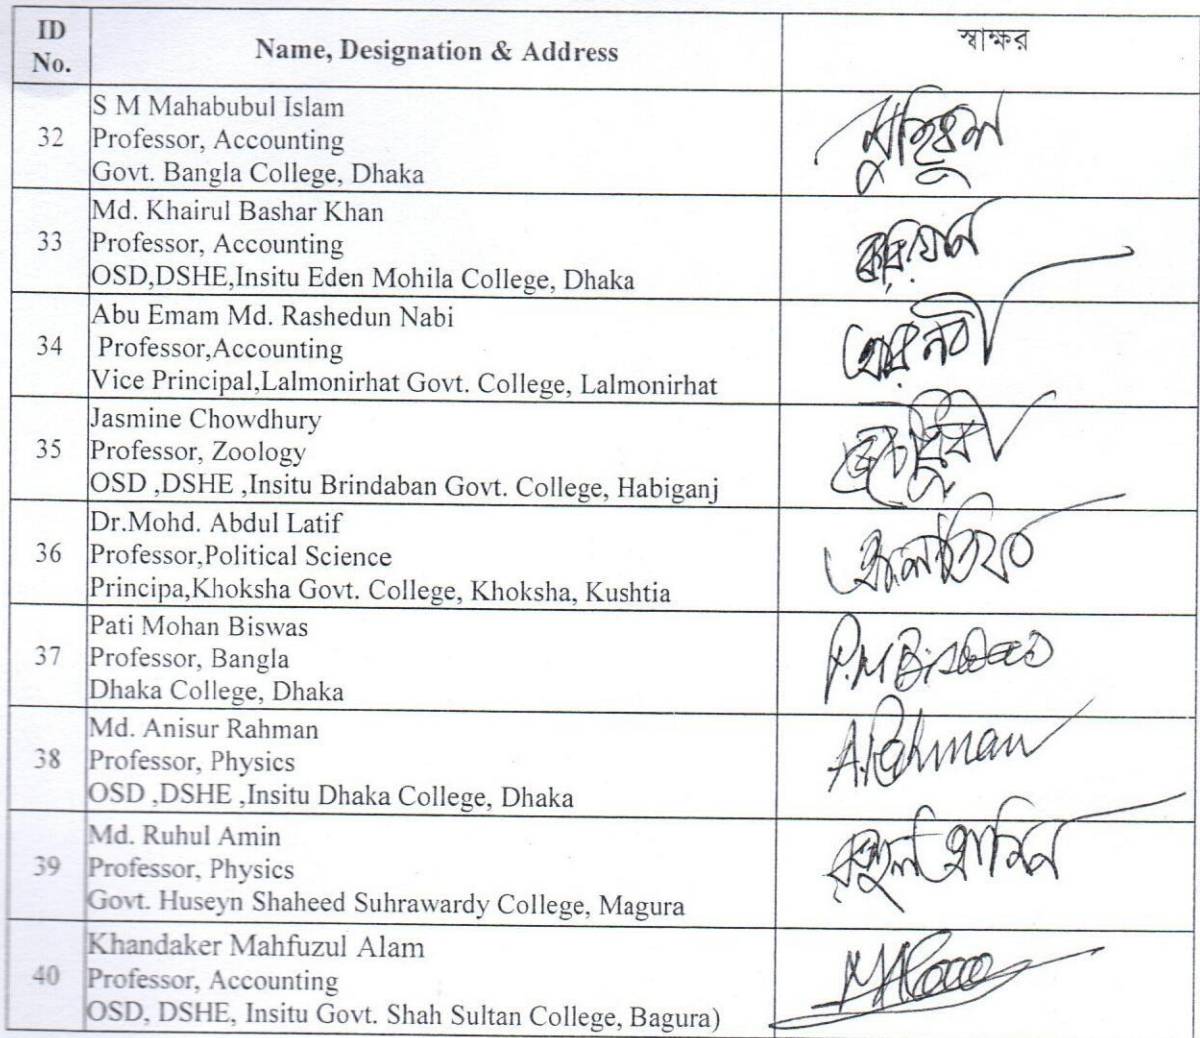 ID No.
Name, Designation & Address
স্বাক্ষর
32
S M Mahabubul Islam
Professor, Accounting
Govt. Bangla College, Dhaka
33
Md. Khairul Bashar Khan
Professor, Accounting
OSD,DSHE,Insitu Eden Mohila College, Dhaka
34
Abu Emam Md. Rashedun Nabi
Professor,Accounting
Vice Principal,Lalmonirhat Govt. College, Lalmonirhat
35
Jasmine Chowdhury
Professor, Zoology
OSD ,DSHE ,Insitu Brindaban Govt. College, Habiganj
36
Dr.Mohd. Abdul Latif
Professor,Political Science
Principa,Khoksha Govt. College, Khoksha, Kushtia
37
Pati Mohan Biswas
Professor, Bangla
Dhaka College, Dhaka
P.M Biswas
38
Md. Anisur Rahman
Professor, Physics
OSD ,DSHE ,Insitu Dhaka College, Dhaka
A.Rahman
39
Md. Ruhul Amin
Professor, Physics
Govt. Huseyn Shaheed Suhrawardy College, Magura
রুহুল আমিন
40
Khandaker Mahfuzul Alam
Professor, Accounting
OSD, DSHE, Insitu Govt. Shah Sultan College, Bagura)